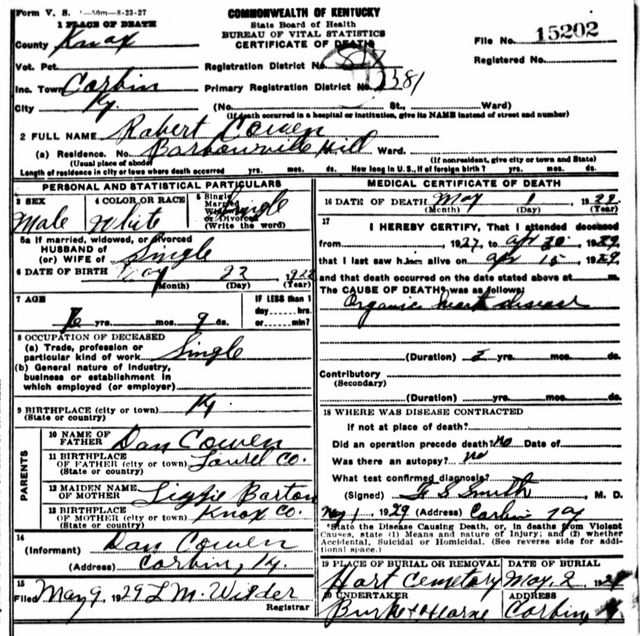 Form V. S. 1-50m-8-23-27
COMMONWEALTH OF KENTUCKY
State Board of Health
BUREAU OF VITAL STATISTICS
CERTIFICATE OF DEATH
File No. 15202
Registered No.
1 PLACE OF DEATH
County Knox
Vot. Pct.
Registration District No.
Inc. Town Corbin
Primary Registration District No. 7381
City Ky (No. St., Ward)
(If death occurred in a hospital or institution, give its NAME instead of street and number)
2 FULL NAME Robert Cowen
(a) Residence. No. Barbourville Hill Ward.
(Usual place of abode) (If nonresident, give city or town and State)
Length of residence in city or town where death occurred yrs. mos. ds. How long in U.S., if of foreign birth? yrs. mos. ds.
PERSONAL AND STATISTICAL PARTICULARS
3 SEX Male
4 COLOR OR RACE White
5 Single Married Widowed or Divorced (Write the word) Single
5a If married, widowed, or divorced
HUSBAND of
(or) WIFE of Single
6 DATE OF BIRTH 22
(Month) (Day) (Year)
7 AGE yrs. mos. 9 ds.
IF LESS than 1 day hrs. or min.?
8 OCCUPATION OF DECEASED
(a) Trade, profession or
particular kind of work Single
(b) General nature of Industry,
business or establishment in
which employed (or employer)
9 BIRTHPLACE (city or town) Ky.
(State or country)
PARENTS
10 NAME OF
FATHER Dan Cowen
11 BIRTHPLACE
OF FATHER (city or town) Laurel Co.
(State or country)
12 MAIDEN NAME
OF MOTHER Lizzie Barton
13 BIRTHPLACE
OF MOTHER (city or town) Knox Co.
(State or country)
14
(Informant) Dan Cowen
(Address) Corbin, Ky.
15
Filed May 9, 1929 L M. Wilder
Registrar
MEDICAL CERTIFICATE OF DEATH
16 DATE OF DEATH May 1 1929
(Month) (Day) (Year)
17
I HEREBY CERTIFY, That I attended deceased
from , 1927, to Apr 30 1929
that I last saw him alive on Apr 15 1929,
and that death occurred on the date stated above at m.
The CAUSE OF DEATH was as follows:
Organic heart disease
(Duration) yrs. mos. ds.
Contributory
(Secondary)
(Duration) yrs. mos. ds.
18 WHERE WAS DISEASE CONTRACTED
If not at place of death?
Did an operation precede death? no Date of
Was there an autopsy? no
What test confirmed diagnosis?
(Signed) S Smith, M. D.
May 1, 1929 (Address) Corbin Ky
*State the Disease Causing Death, or, in deaths from Violent
Causes, state (1) Means and nature of Injury; and (2) whether
Accidental, Suicidal or Homicidal. (See reverse side for addi-
tional space.)
19 PLACE OF BURIAL OR REMOVAL DATE OF BURIAL
Hart Cemetary May 2 1929
20 UNDERTAKER ADDRESS
Burke Hearne Corbin Ky